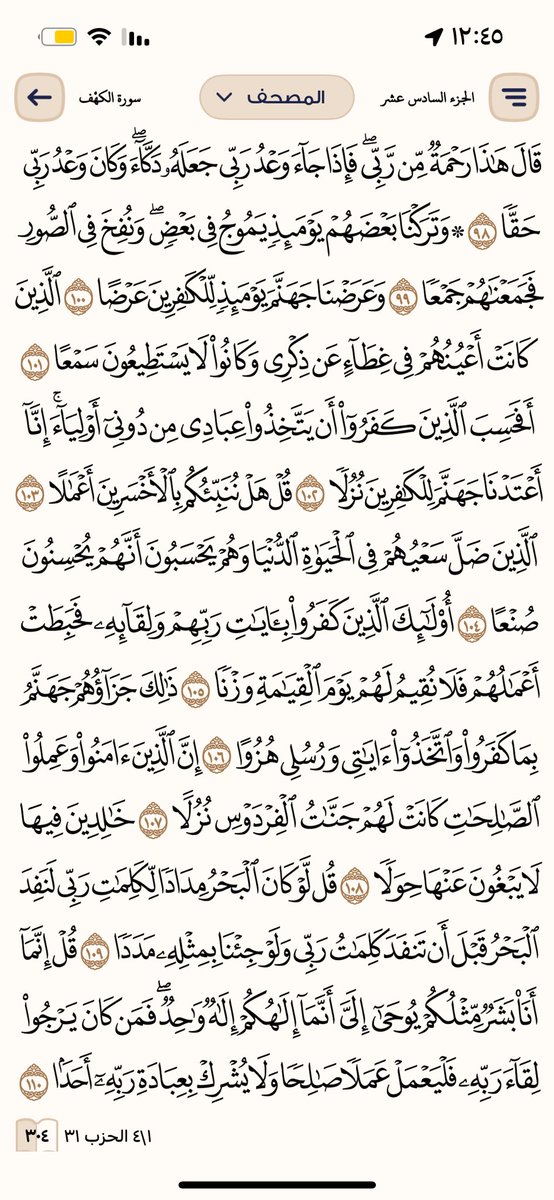 ١٢:٤٥
الجزء السادس عشر المصحف سورة الكهف
قَالَ هَٰذَا رَحْمَةٌ مِّن رَّبِّي ۖ فَإِذَا جَآءَ وَعْدُ رَبِّي جَعَلَهُۥ دَكَّآءَ ۖ وَكَانَ وَعْدُ رَبِّي
حَقًّا ٩٨ ۞ وَتَرَكْنَا بَعْضَهُمْ يَوْمَئِذٍ يَمُوجُ فِي بَعْضٍ ۖ وَنُفِخَ فِي ٱلصُّورِ
فَجَمَعْنَٰهُمْ جَمْعًا ٩٩ وَعَرَضْنَا جَهَنَّمَ يَوْمَئِذٍ لِّلْكَٰفِرِينَ عَرْضًا ١٠٠ ٱلَّذِينَ
كَانَتْ أَعْيُنُهُمْ فِي غِطَآءٍ عَن ذِكْرِي وَكَانُوا۟ لَا يَسْتَطِيعُونَ سَمْعًا ١٠١
أَفَحَسِبَ ٱلَّذِينَ كَفَرُوٓا۟ أَن يَتَّخِذُوا۟ عِبَادِي مِن دُونِيٓ أَوْلِيَآءَ ۚ إِنَّآ
أَعْتَدْنَا جَهَنَّمَ لِلْكَٰفِرِينَ نُزُلًا ١٠٢ قُلْ هَلْ نُنَبِّئُكُم بِٱلْأَخْسَرِينَ أَعْمَٰلًا ١٠٣
ٱلَّذِينَ ضَلَّ سَعْيُهُمْ فِي ٱلْحَيَوٰةِ ٱلدُّنْيَا وَهُمْ يَحْسَبُونَ أَنَّهُمْ يُحْسِنُونَ
صُنْعًا ١٠٤ أُو۟لَٰٓئِكَ ٱلَّذِينَ كَفَرُوا۟ بِـَٔايَٰتِ رَبِّهِمْ وَلِقَآئِهِۦ فَحَبِطَتْ
أَعْمَٰلُهُمْ فَلَا نُقِيمُ لَهُمْ يَوْمَ ٱلْقِيَٰمَةِ وَزْنًا ١٠٥ ذَٰلِكَ جَزَآؤُهُمْ جَهَنَّمُ
بِمَا كَفَرُوا۟ وَٱتَّخَذُوٓا۟ ءَايَٰتِي وَرُسُلِي هُزُوًا ١٠٦ إِنَّ ٱلَّذِينَ ءَامَنُوا۟ وَعَمِلُوا۟
ٱلصَّٰلِحَٰتِ كَانَتْ لَهُمْ جَنَّٰتُ ٱلْفِرْدَوْسِ نُزُلًا ١٠٧ خَٰلِدِينَ فِيهَا
لَا يَبْغُونَ عَنْهَا حِوَلًا ١٠٨ قُل لَّوْ كَانَ ٱلْبَحْرُ مِدَادًا لِّكَلِمَٰتِ رَبِّي لَنَفِدَ
ٱلْبَحْرُ قَبْلَ أَن تَنفَدَ كَلِمَٰتُ رَبِّي وَلَوْ جِئْنَا بِمِثْلِهِۦ مَدَدًا ١٠٩ قُلْ إِنَّمَآ
أَنَا۠ بَشَرٌ مِّثْلُكُمْ يُوحَىٰٓ إِلَيَّ أَنَّمَآ إِلَٰهُكُمْ إِلَٰهٌ وَٰحِدٌ ۖ فَمَن كَانَ يَرْجُوا۟
لِقَآءَ رَبِّهِۦ فَلْيَعْمَلْ عَمَلًا صَٰلِحًا وَلَا يُشْرِكْ بِعِبَادَةِ رَبِّهِۦٓ أَحَدًۢا ١١٠
١\٤ الحزب ٣١ ٣٠٤